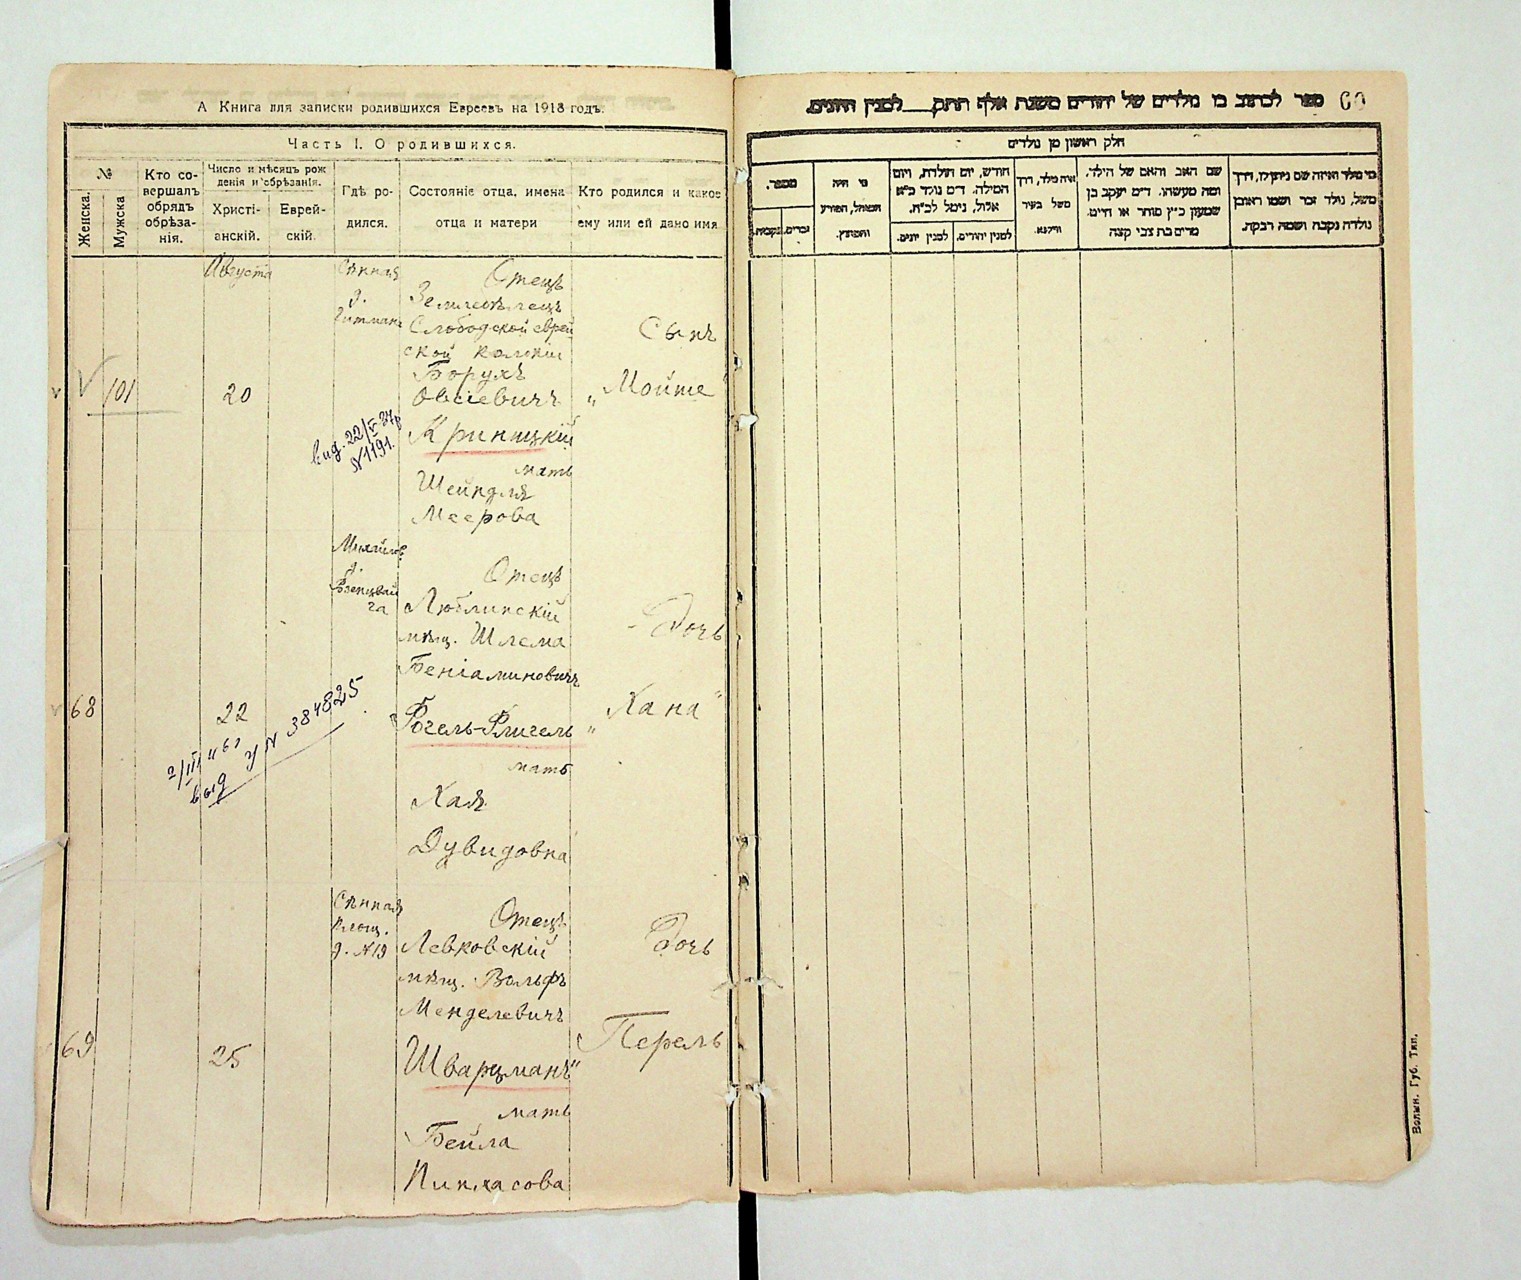 А Книга для записки родившихся Евреевъ на 1918 годъ.
Часть I. О родившихся.
№
Женска.
Мужска
Кто со-
вершалъ
обрядъ
обрѣза-
нія.
Число и мѣсяцъ рож
денія и обрѣзанія.
Христі-
анскій.
Еврей-
скій.
Гдѣ ро-
дился.
Состояніе отца, имена
отца и матери
Кто родился и какое
ему или ей дано имя
Августа
Сѣнная
д.
Отецъ
Землевѣлецъ
Слободской еврей
ской колоніи
Борухъ
Овсіевичъ
Криницкій
мать
Шейндля
Меерова
Сынъ
„Мойше"
101
20
вид. 22/V 27р
N 1191.
Михайлов
д.
Розенцвай
га
Отецъ
Люблинскій
мѣщ. Шлема
Беніаминовичъ
Фогель-Флигель
мать
Хая
Дувидовна
Дочь
„Хана"
68
22
выд
Сѣнная
площ.
д. N19
Отецъ
Левковскій
мѣщ. Вольфъ
Менделевичъ
Шварцманъ"
мать
Бейла
Пинхасова
Дочь
Перель
69
25
ספר לכתוב בו נולדים של יהודים משנת אלף תתק___ למנין היונים.
60
חלק ראשון מן נולדים
מספר.
נקבות.
זכרים.
מי היה
המוהל, הפורע
והמוצץ.
חודש, יום תולדת, ויום
המילה. ד״מ נולד כ״א
אלול, נימל לכ״ח.
למנין יונים.
למנין יהודים.
איה נולד, דרך
משל בעיר
ווילנא.
שם האב והאם של הילד.
ומה מעשהו. ד״מ יעקב בן
שמעון כ״ץ סוחר או חייט.
מרים בת צבי קצה
מי נולד ואיזה שם ניתן לו, דרך
משל, נולד זכר ושמו ראובן
נולדה נקבה ושמה רבקה.
Волын. Губ. Тип.